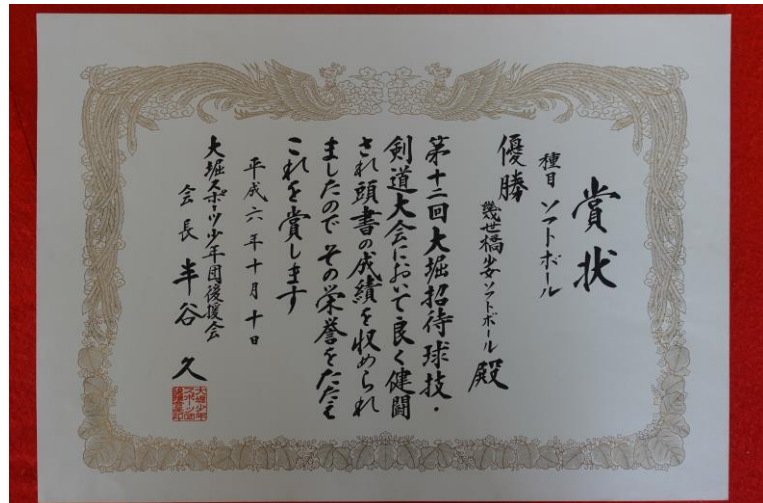 賞状
種目 ソフトボール
優勝
幾世橋少女ソフトボール 殿
第十二回大堀招待球技・
剣道大会において良く健闘
され頭書の成績を収められ
ましたので その栄誉をたたえ
これを賞します
平成六年十月十日
大堀スポーツ少年団後援会
会長 半谷 久